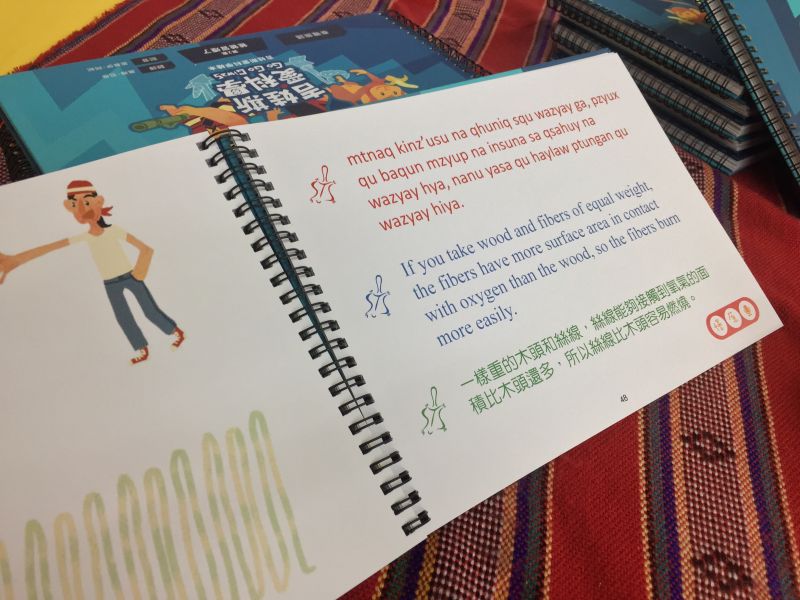 吉娃斯
愛科學
Go Go Giwas
mtnaq kinz'usu na qhuniq squ wazyay ga, pzyux
qu baqun mzyup na insuna sa qsahuy na
wazyay hya, nanu yasa qu haylaw ptungan qu
wazyay hiya.
If you take wood and fibers of equal weight,
the fibers have more surface area in contact
with oxygen than the wood, so the fibers burn
more easily.
一樣重的木頭和絲線，絲線能夠接觸到氧氣的面
積比木頭還多，所以絲線比木頭容易燃燒。
48